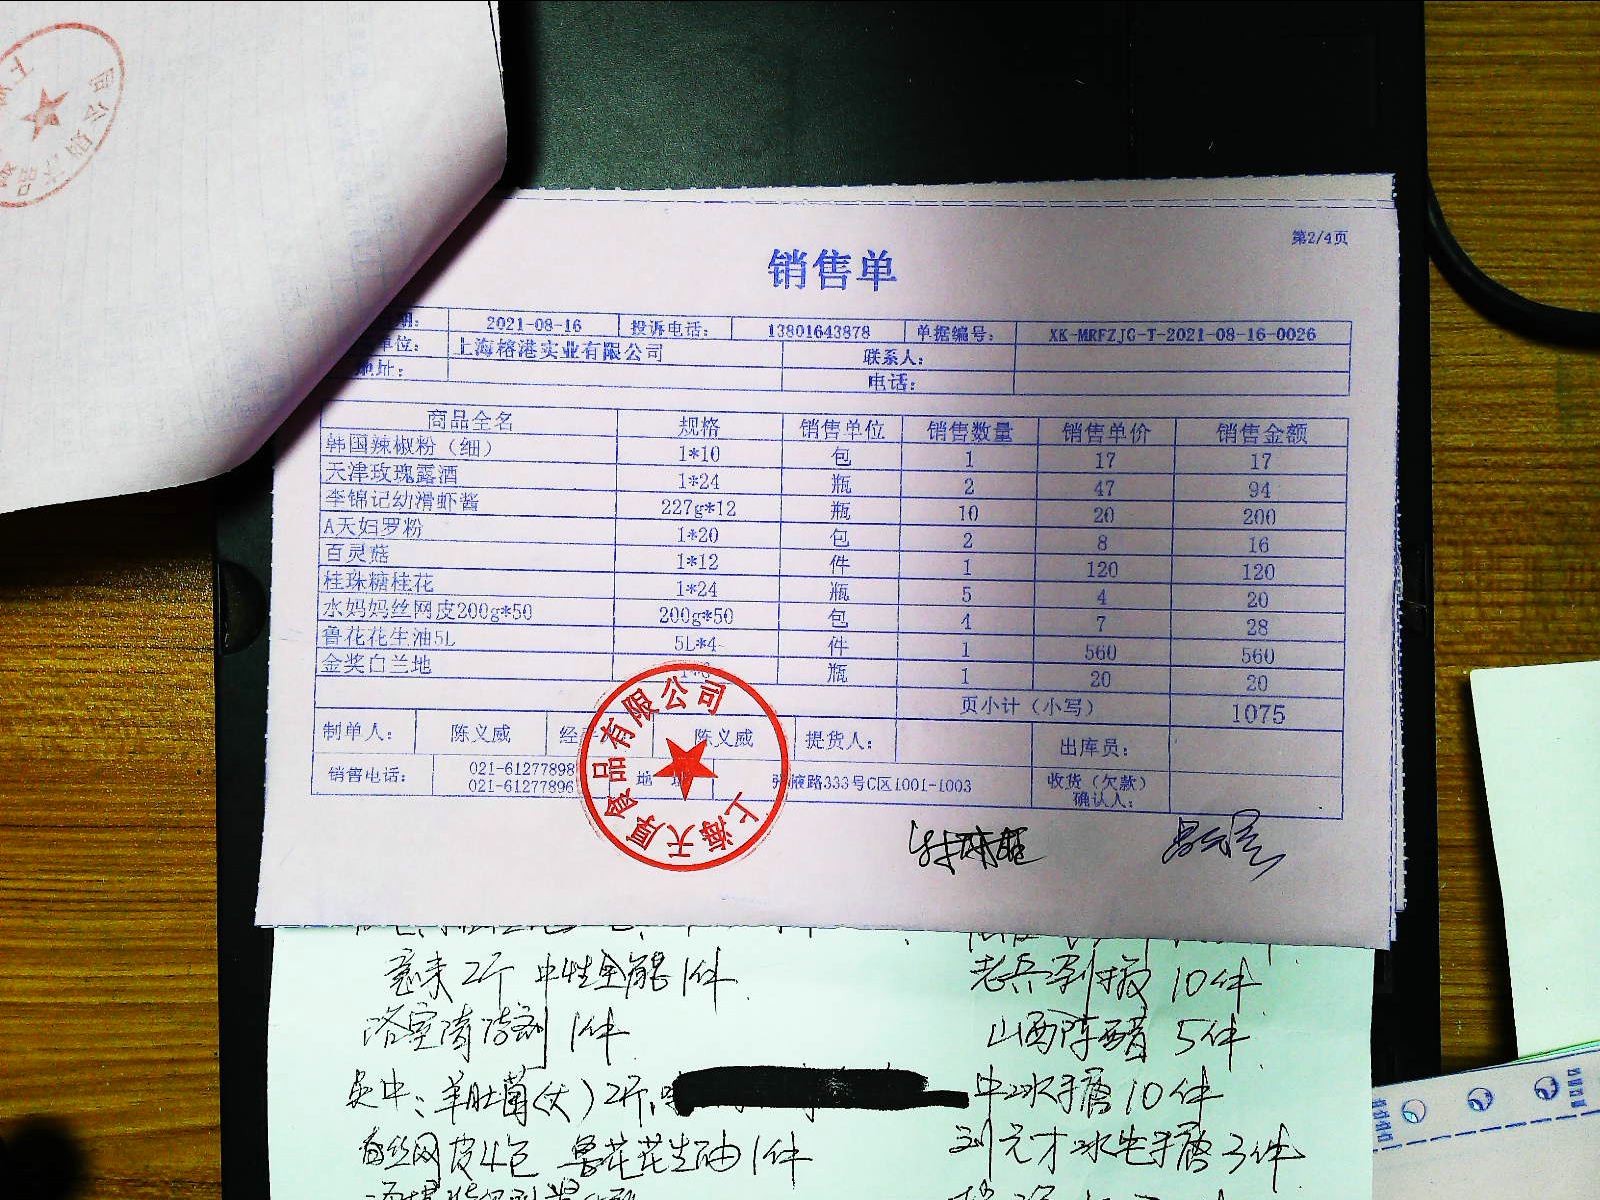 第2/4页
销售单
期: 2021-08-16 投诉电话: 13801643878 单据编号: XK-MRFZJG-T-2021-08-16-0026
单位: 上海榕港实业有限公司 联系人:
地址: 电话:
商品全名 规格 销售单位 销售数量 销售单价 销售金额
韩国辣椒粉（细） 1*10 包 1 17 17
天津玫瑰露酒 1*24 瓶 2 47 94
李锦记幼滑虾酱 227g*12 瓶 10 20 200
A天妇罗粉 1*20 包 2 8 16
百灵菇 1*12 件 1 120 120
桂珠糖桂花 1*24 瓶 5 4 20
水妈妈丝网皮200g*50 200g*50 包 4 7 28
鲁花花生油5L 5L*4 件 1 560 560
金奖白兰地 瓶 1 20 20
页小计（小写） 1075
制单人: 陈义威 经 陈义威 提货人: 出库员:
销售电话: 021-61277898 021-61277896 地址 张掖路333号C区1001-1003 收货（欠款）确认人:
上海天厚食品有限公司
意米2斤 中性全能1件 老兵剁椒10件
浴室清洁剂1件 山西陈醋5件
羊肚菌(大)2斤 10件
丝网皮4包 鲁花花生油1件 3件